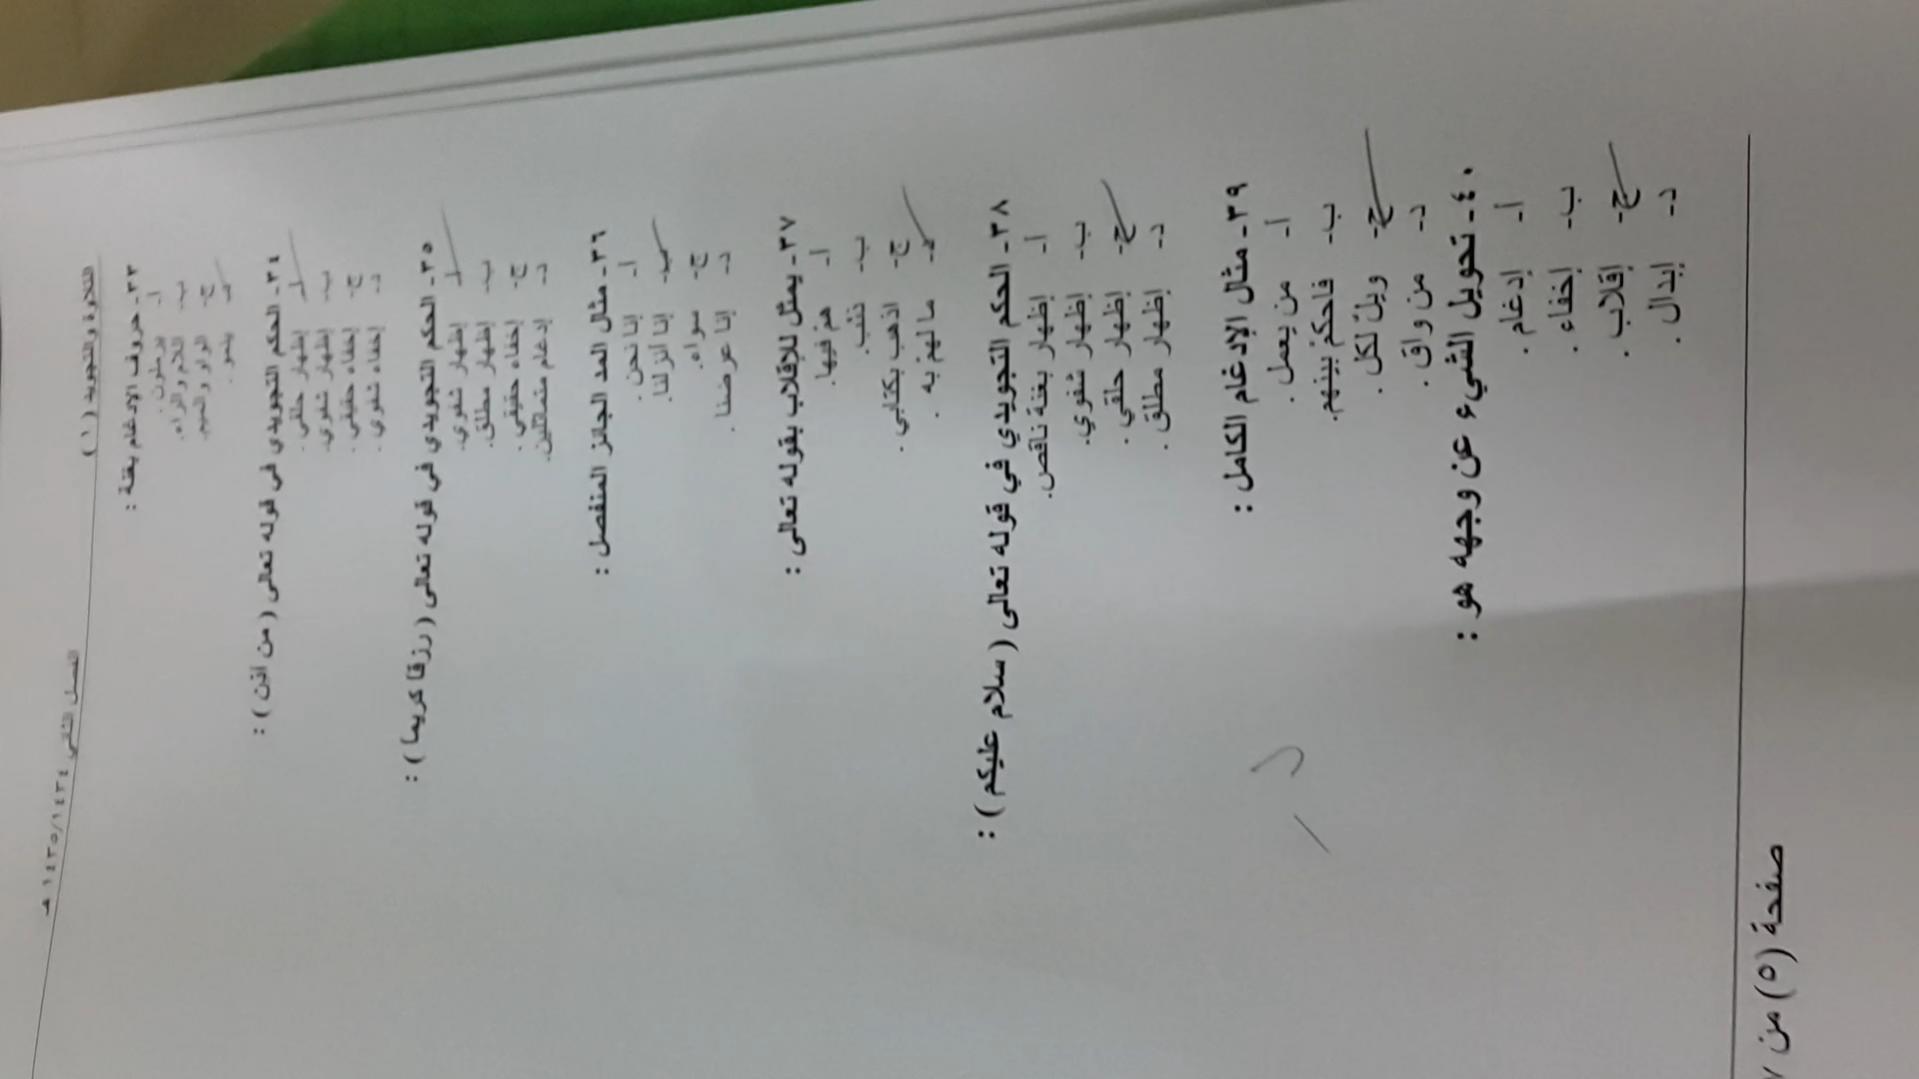 التلاوة والتجويد (١) الفصل الثاني ١٤٣٥/١٤٣٤ هـ
٣٣- حروف الإدغام بغنة :
أ- يرملون .
ب- اللام والراء.
ج- الواو والميم.
د- ينمو .
٣٤- الحكم التجويدي في قوله تعالى ( من أذن ) :
أ- إظهار حلقي .
ب- إظهار شفوي.
ج- إخفاء حقيقي .
د- إخفاء شفوي .
٣٥- الحكم التجويدي في قوله تعالى ( رزقا كريما ) :
أ- إظهار شفوي .
ب- إظهار مطلق.
ج- إخفاء حقيقي .
د- إدغام متماثلين.
٣٦- مثال المد الجائز المنفصل :
أ- إنا نحن .
ب- إنا أنزلنا.
ج- سواء.
د- إنا عرضنا .
٣٧- يمثل للإقلاب بقوله تعالى :
أ- هم فيها.
ب-
ج- اذهب بكتابي .
د- ما لهم به .
٣٨- الحكم التجويدي في قوله تعالى ( سلام عليكم ) :
أ- إظهار بغنة ناقص.
ب- إظهار شفوي.
ج- إظهار حلقي .
د- إظهار مطلق .
٣٩- مثال الإدغام الكامل :
أ- من يعمل .
ب- فاحكم بينهم.
ج- ويل لكل .
د- من واق .
٤٠- تحويل الشيء عن وجهه هو :
أ- إدغام .
ب- إخفاء .
ج- إقلاب .
د- إبدال .
صفحة (٥) من ٧